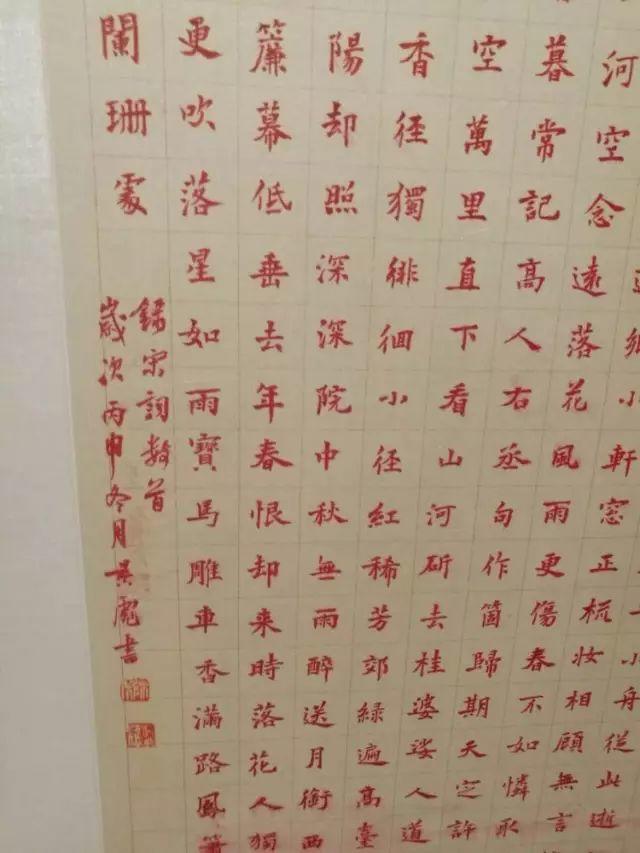 小舟從此逝
鄉小軒窓正梳妝相顧無言
河空念遠落花風雨更傷春不如憐取
暮常記高人右丞句作箇歸期天定許
空萬里直下看山河斫去桂婆娑人道
香徑獨徘徊小徑紅稀芳郊綠遍高臺
陽却照深深院中秋無雨醉送月銜西
簾幕低垂去年春恨却来時落花人獨
更吹落星如雨寶馬雕車香滿路鳳簫
闌珊處
錄宋詞數首
歲次丙申冬月吴彪書